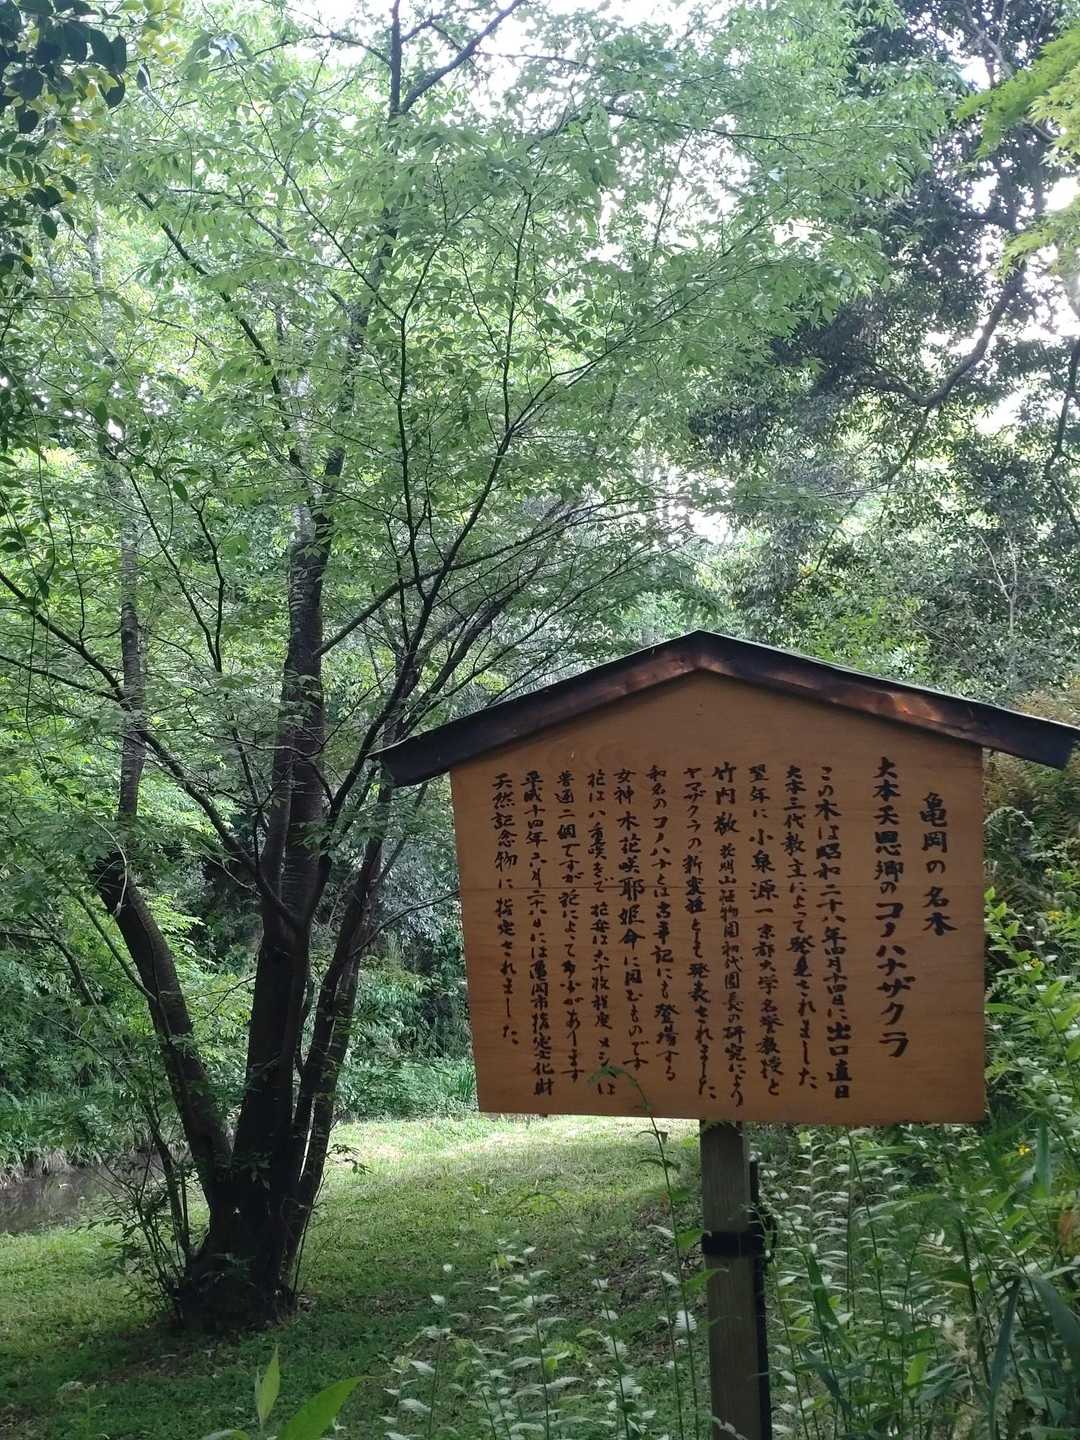 亀岡の名木
大本天恩郷のコノハナザクラ
この木は昭和二十八年四月十四日に出口直日
大本三代教主によって発見されました
翌年に小泉源一京都大学名誉教授と
竹内敬 花明山植物園初代園長の研究により
ヤマザクラの新変種として発表されました。
和名のコノハナとは古事記にも登場する
女神 木花咲耶姫命に因むものです
花は八重咲きで 花弁は六十枚程度 メシベは
普通二個ですが 花によって多少があります
平成十四年六月二八日には亀岡市指定文化財
天然記念物に指定されました。